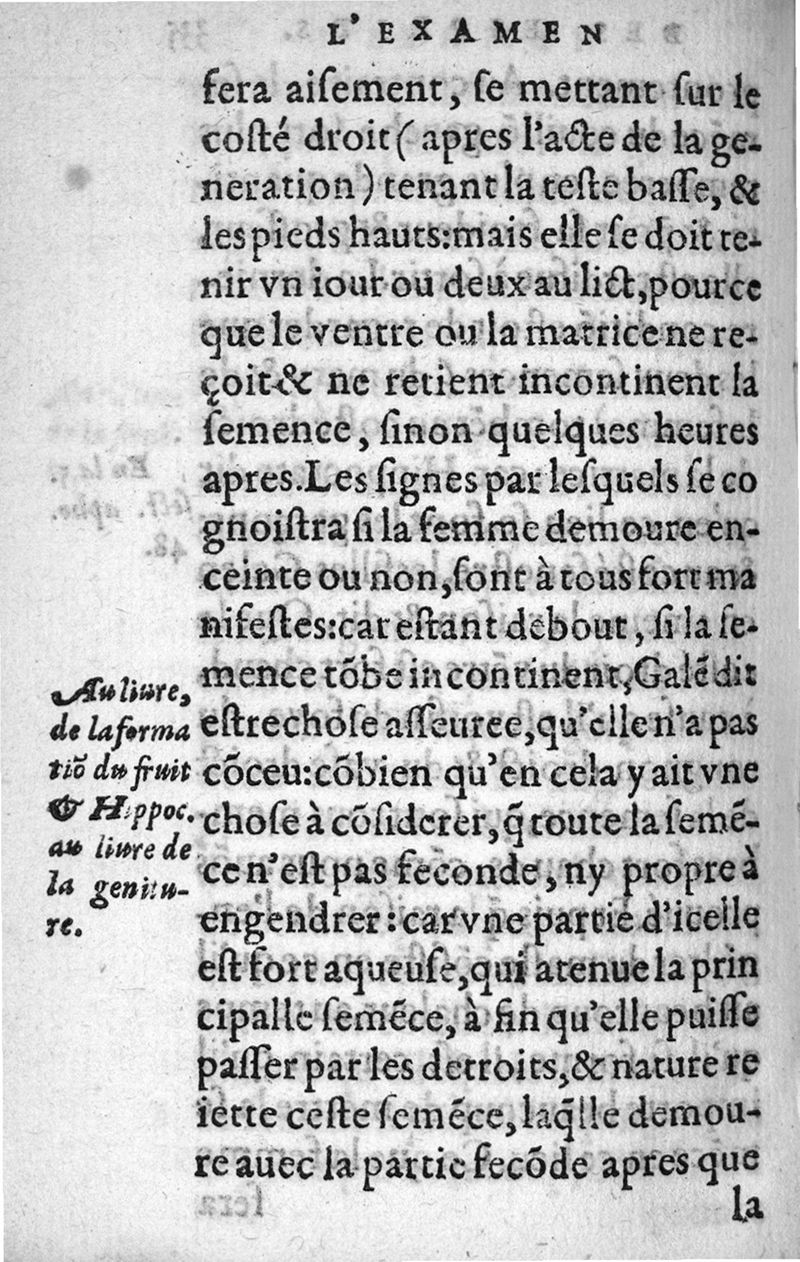 L'EXAMEN
fera aiſement, ſe mettant ſur le
coſté droit ( apres l'acte de la ge-
neration ) tenant la teſte baſſe, &
les pieds hauts: mais elle ſe doit te-
nir vn iour ou deux au lict, pource
que le ventre ou la matrice ne re-
çoit & ne retient incontinent la
ſemence, ſinon quelques heures
apres. Les ſignes par leſquels ſe co
gnoiſtra ſi la femme demoure en-
ceinte ou non, ſont à tous fort ma
nifeſtes: car eſtant debout, ſi la ſe-
mence tõbe incontinent, Galẽ dit
eſtre choſe aſſeuree, qu'elle n'a pas
cõceu: cõbien qu'en cela y ait vne
choſe à cõſiderer, q̃ toute la ſemẽ-
ce n'eſt pas feconde, ny propre à
engendrer: car vne partie d'icelle
eſt fort aqueuſe, qui atenue la prin
cipalle ſemẽce, à fin qu'elle puiſſe
paſſer par les detroits, & nature re
iette ceſte ſemẽce, laq̃lle demou-
re auec la partie fecõde apres que
la
Au liure,
de la forma
tiõ du fruit
& Hippoc.
au liure de
la genitu-
re.